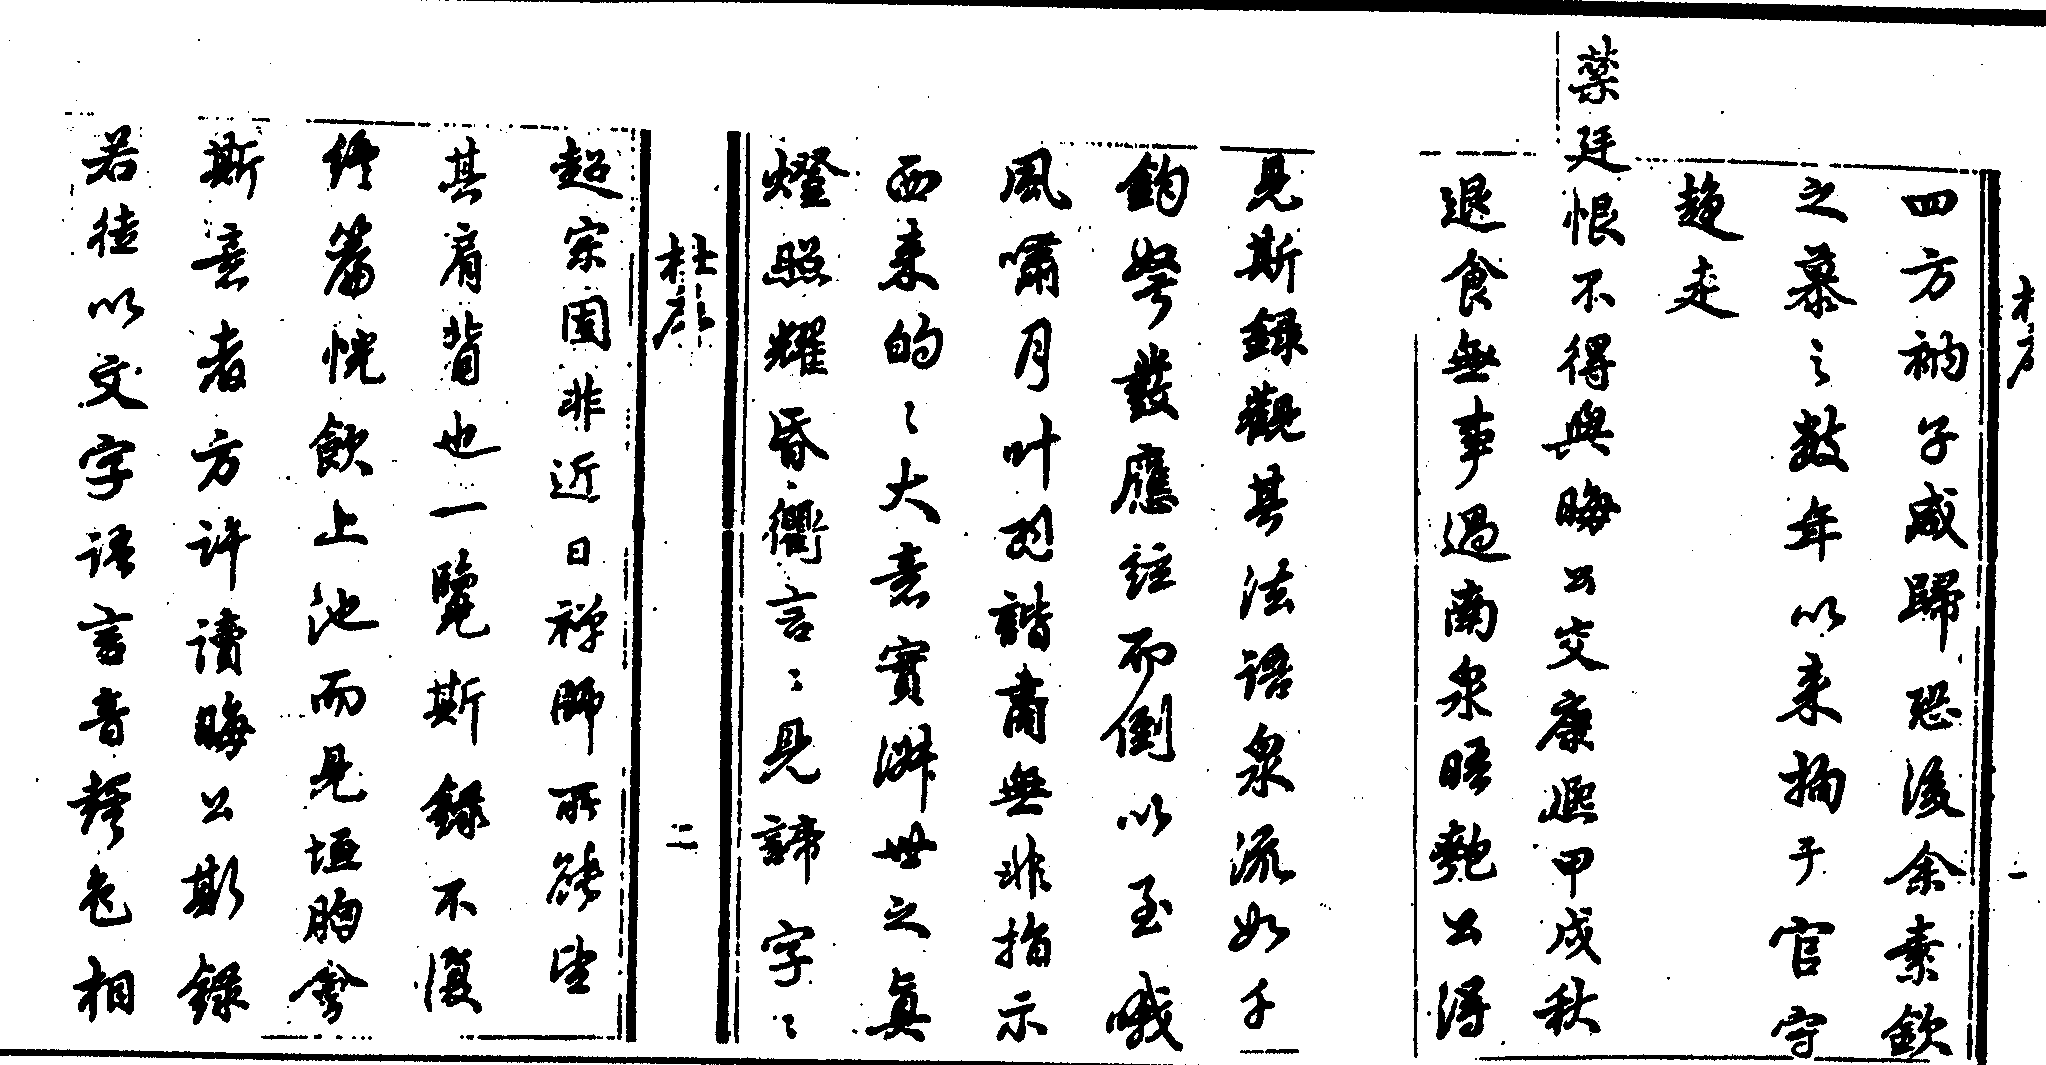 杜序
一
四方衲子咸歸恐後余素欽
之慕之数年以来拘于官守
趨走
禁廷恨不得與晦公交康熙甲戌秋
退食無事過南泉晤麹公得
見斯録觀其法語泉流如千
鈞弩發應絃而倒以至哦
風嘯月叶韵諧商無非指示
西来的〻大意實濟世之真
燈照耀昏衢言〻見諦字〻
杜序
二
超宗固非近日禅師所能望
其肩背也一覽斯録不覺
終篇恍飲上池而見垣胸會
斯意者方許讀晦公斯録
若徒以文字語言音聲色相